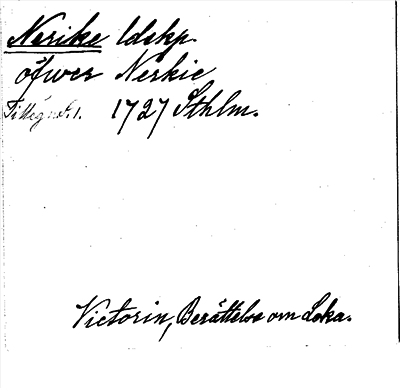 Nerike ldskp.
öfwer Nerkie
Tillägnet. 1. 1727 Sthlm.
Victorin, Berättelse om Loka.